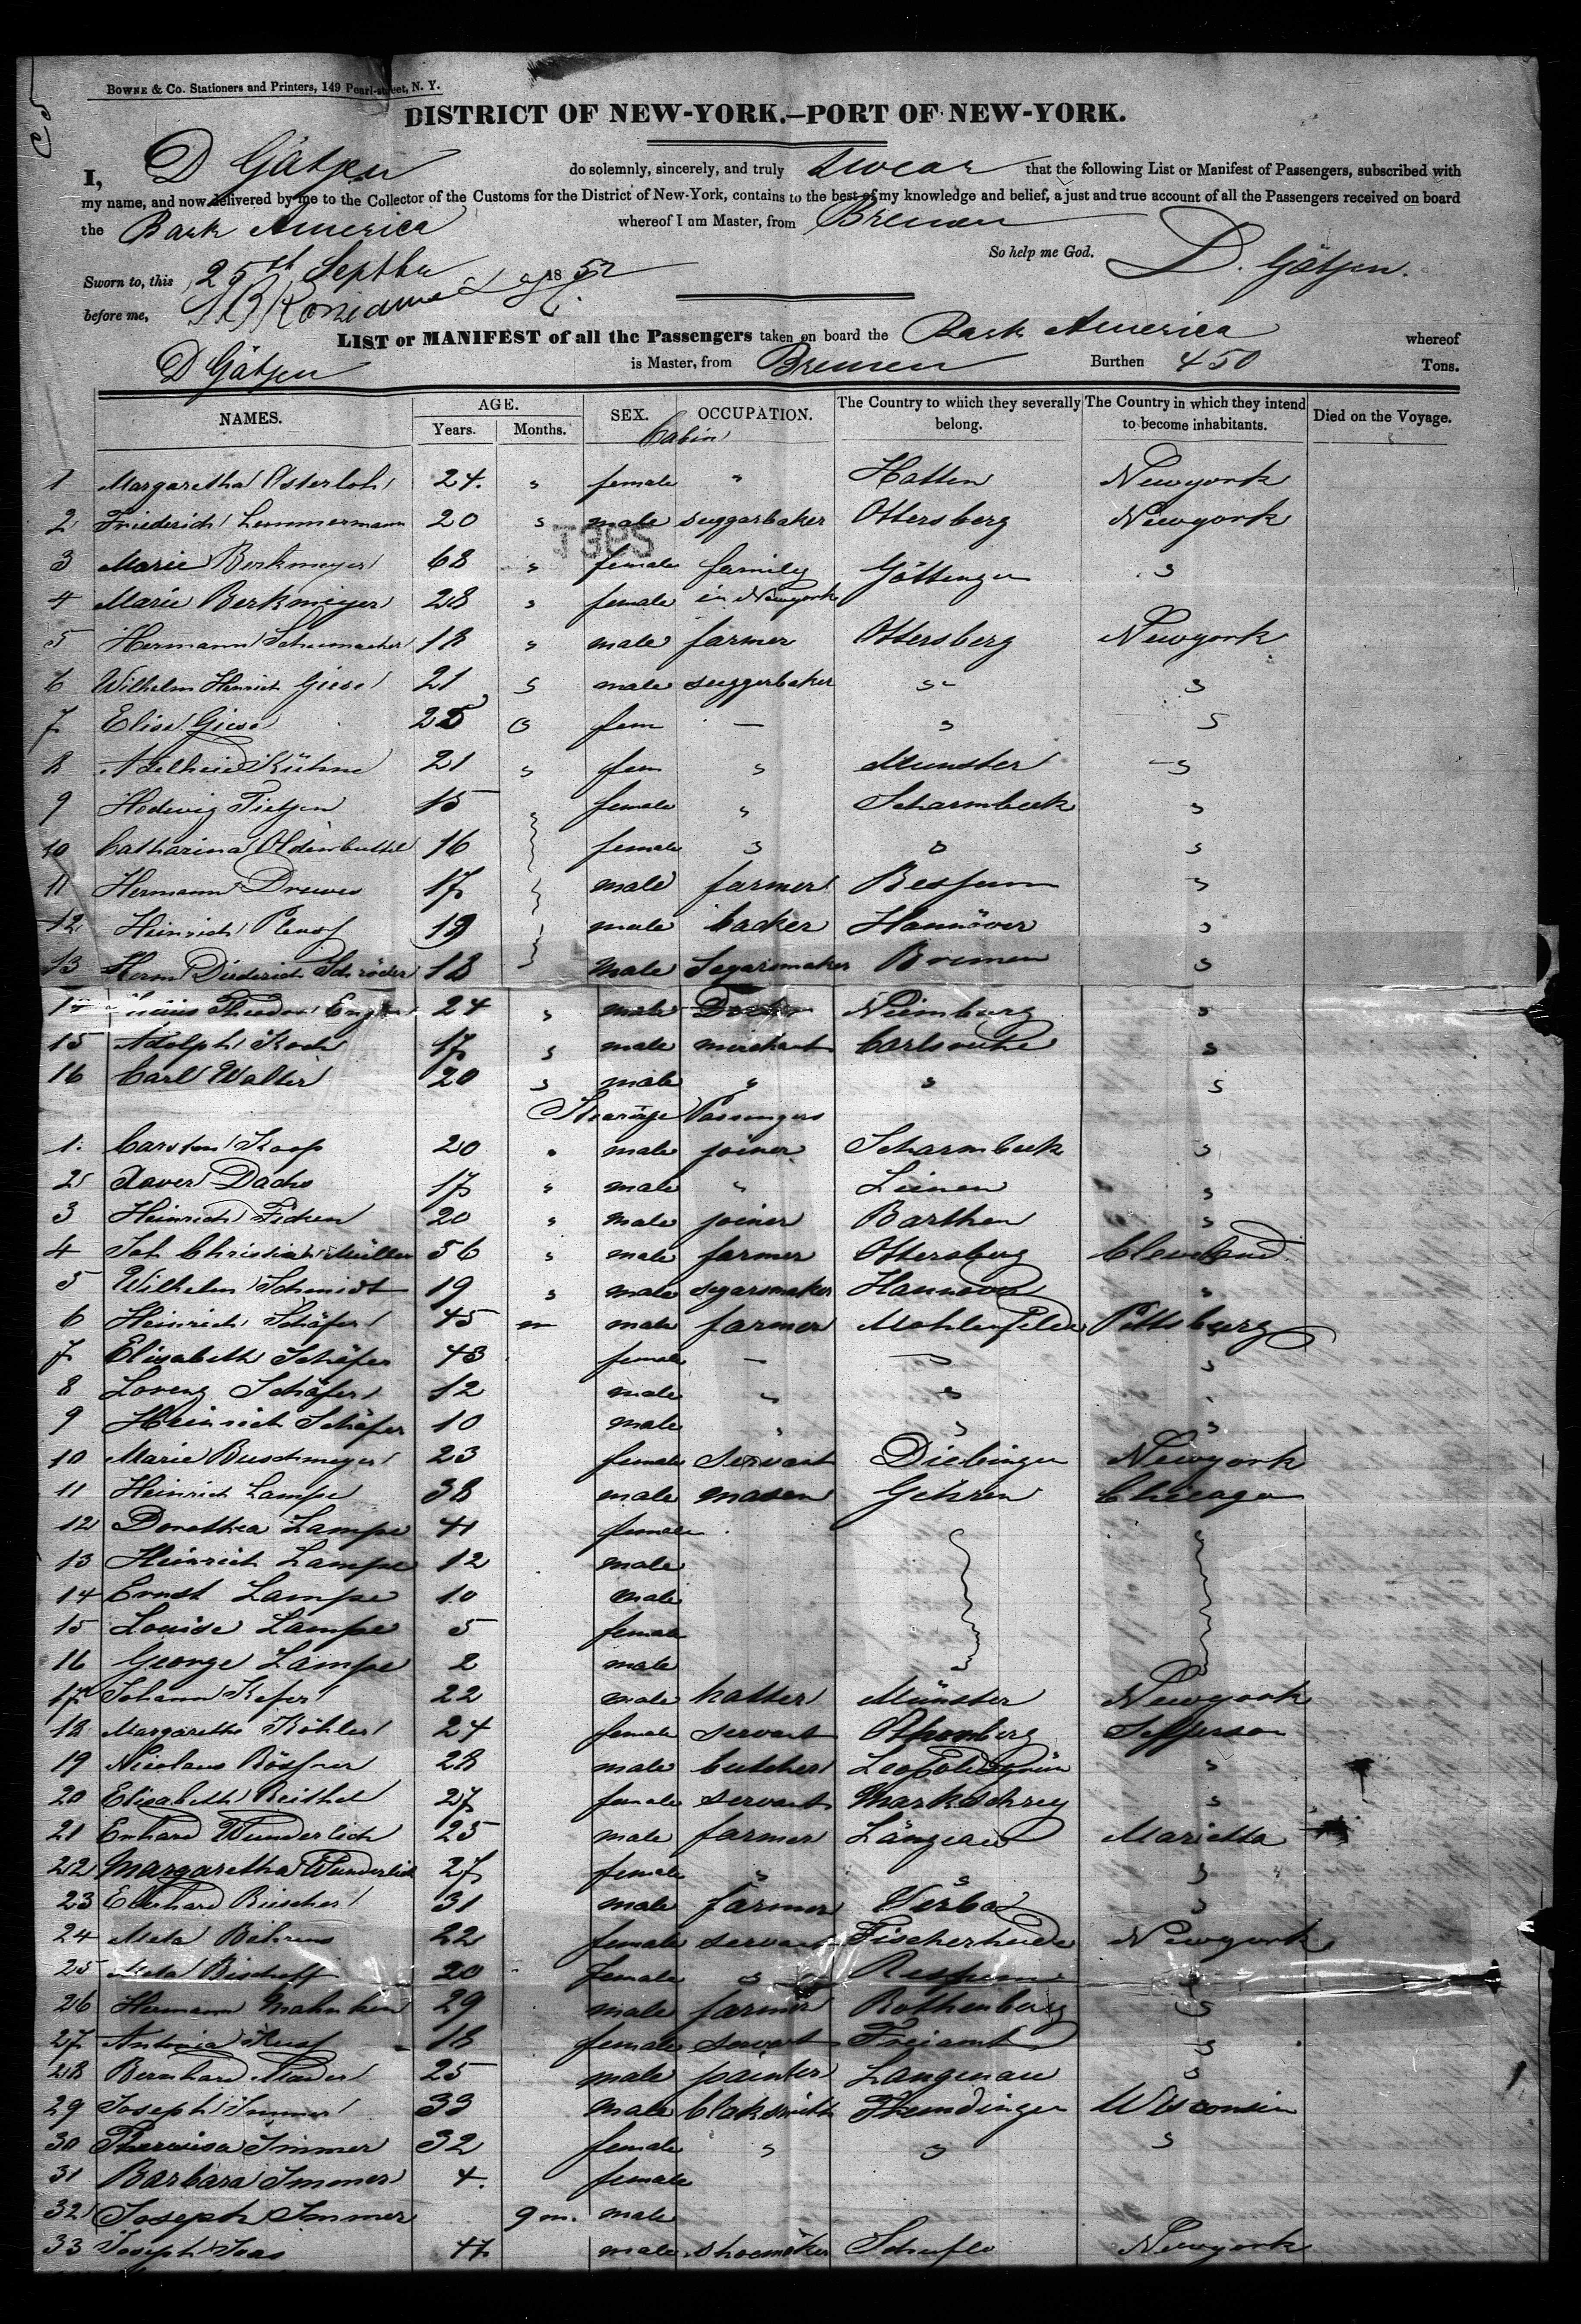 BOWNE & Co. Stationers and Printers, 149 Pearl-street, N. Y.
DISTRICT OF NEW-YORK.—PORT OF NEW-YORK.
I, D Gätjen do solemnly, sincerely, and truly swear that the following List or Manifest of Passengers, subscribed with
my name, and now delivered by me to the Collector of the Customs for the District of New-York, contains to the best of my knowledge and belief, a just and true account of all the Passengers received on board
the Bark America whereof I am Master, from Bremen
So help me God. D. Gätjen.
Sworn to, this 25 Septbr 1852
before me,
LIST or MANIFEST of all the Passengers taken on board the Bark America whereof
D Gätjen is Master, from Bremen Burthen 450 Tons.
NAMES. AGE. Years. Months. SEX. OCCUPATION. The Country to which they severally belong. The Country in which they intend to become inhabitants. Died on the Voyage.
Cabin
1 Margaretha Osterloh 24. " female " Hatten Newyork
2 Friederich Lemmermann 20 " male suggarbaker Ottersberg Newyork
3 Marie Berkmeyer 68 " female family Göttengen "
4 Marie Berkmeyer 28 " female in Newyork
5 Hermann Schumacher 18 " male farmer Ottersberg Newyork
6 Wilhelm Heinrich Giese 21 " male suggerbaker " "
7 Elise Giese 25 fem — " "
8 Adelheid Kühne 21 " fem " Munster "
9 Hedwig Tietjen 15 " female " Scharmbeck "
10 Catharina Oldenbuttel 16 female " " "
11 Hermann Drewes 17 male farmer "
12 Heinrich 19 male backer Hannover "
13 Herm Diederich Schröder 18 male Segarsmaker Bremen "
14 Theodor 24 " male "
15 Adolph Koch 17 " male merchant Carlsruhe "
16 Carl Walter 20 " male " " "
Steerage Passengers
1. Carsten Koop 20 " male joiner Scharmbeck "
2 Xaver Dachs 17 " male " "
3 Heinrich Ficken 20 " male joiner Barthen "
4 Joh Christian Müller 56 " male farmer Ottersberg Cleveland
5 Wilhelm Schmidt 19 " male segarsmaker Hannover "
6 Heinrich Schäfer 45 male farmer Pittsburg
7 Elisabeth Schäfer 43 female — " "
8 Lorenz Schäfer 12 male " " "
9 Heinrich Schäfer 10 male " " "
10 Marie Buschmeyer 23 female servant Dielingen Newyork
11 Heinrich Lampe 38 male mason Gehren Chicago
12 Dorothea Lampe 41 female
13 Heinrich Lampe 12 male
14 Ernst Lampe 10 male
15 Louise Lampe 5 female
16 George Lampe 2 male
17 Johann 22 male hatter Münster Newyork
18 Margaretha Köhler 24 female servant Jefferson
19 Nicolaus 28 male butcher Leopoldsgrün "
20 Elisabeth Reithel 27 female servant "
21 Erhard Wunderlich 25 male farmer Marietta
22 Margaretha Wunderlich 27 female " " "
23 Eberhard Büscher 31 male farmer "
24 Meta Behrens 22 female servant Fischerhude Newyork
25 Meta Bischoff 20 female " "
26 Hermann Mahnken 29 male farmer Rothenburg "
27 Antonia 18 female servant Freiamt "
28 Bernhard 25 male painter Langenau "
29 Joseph Immer 33 male blaksmith Wisconsin
30 Immer 32 female " " "
31 Barbara Immer 4. female
32 Joseph Immer 9 m. male
33 Joseph 47 male shoemaker Newyork